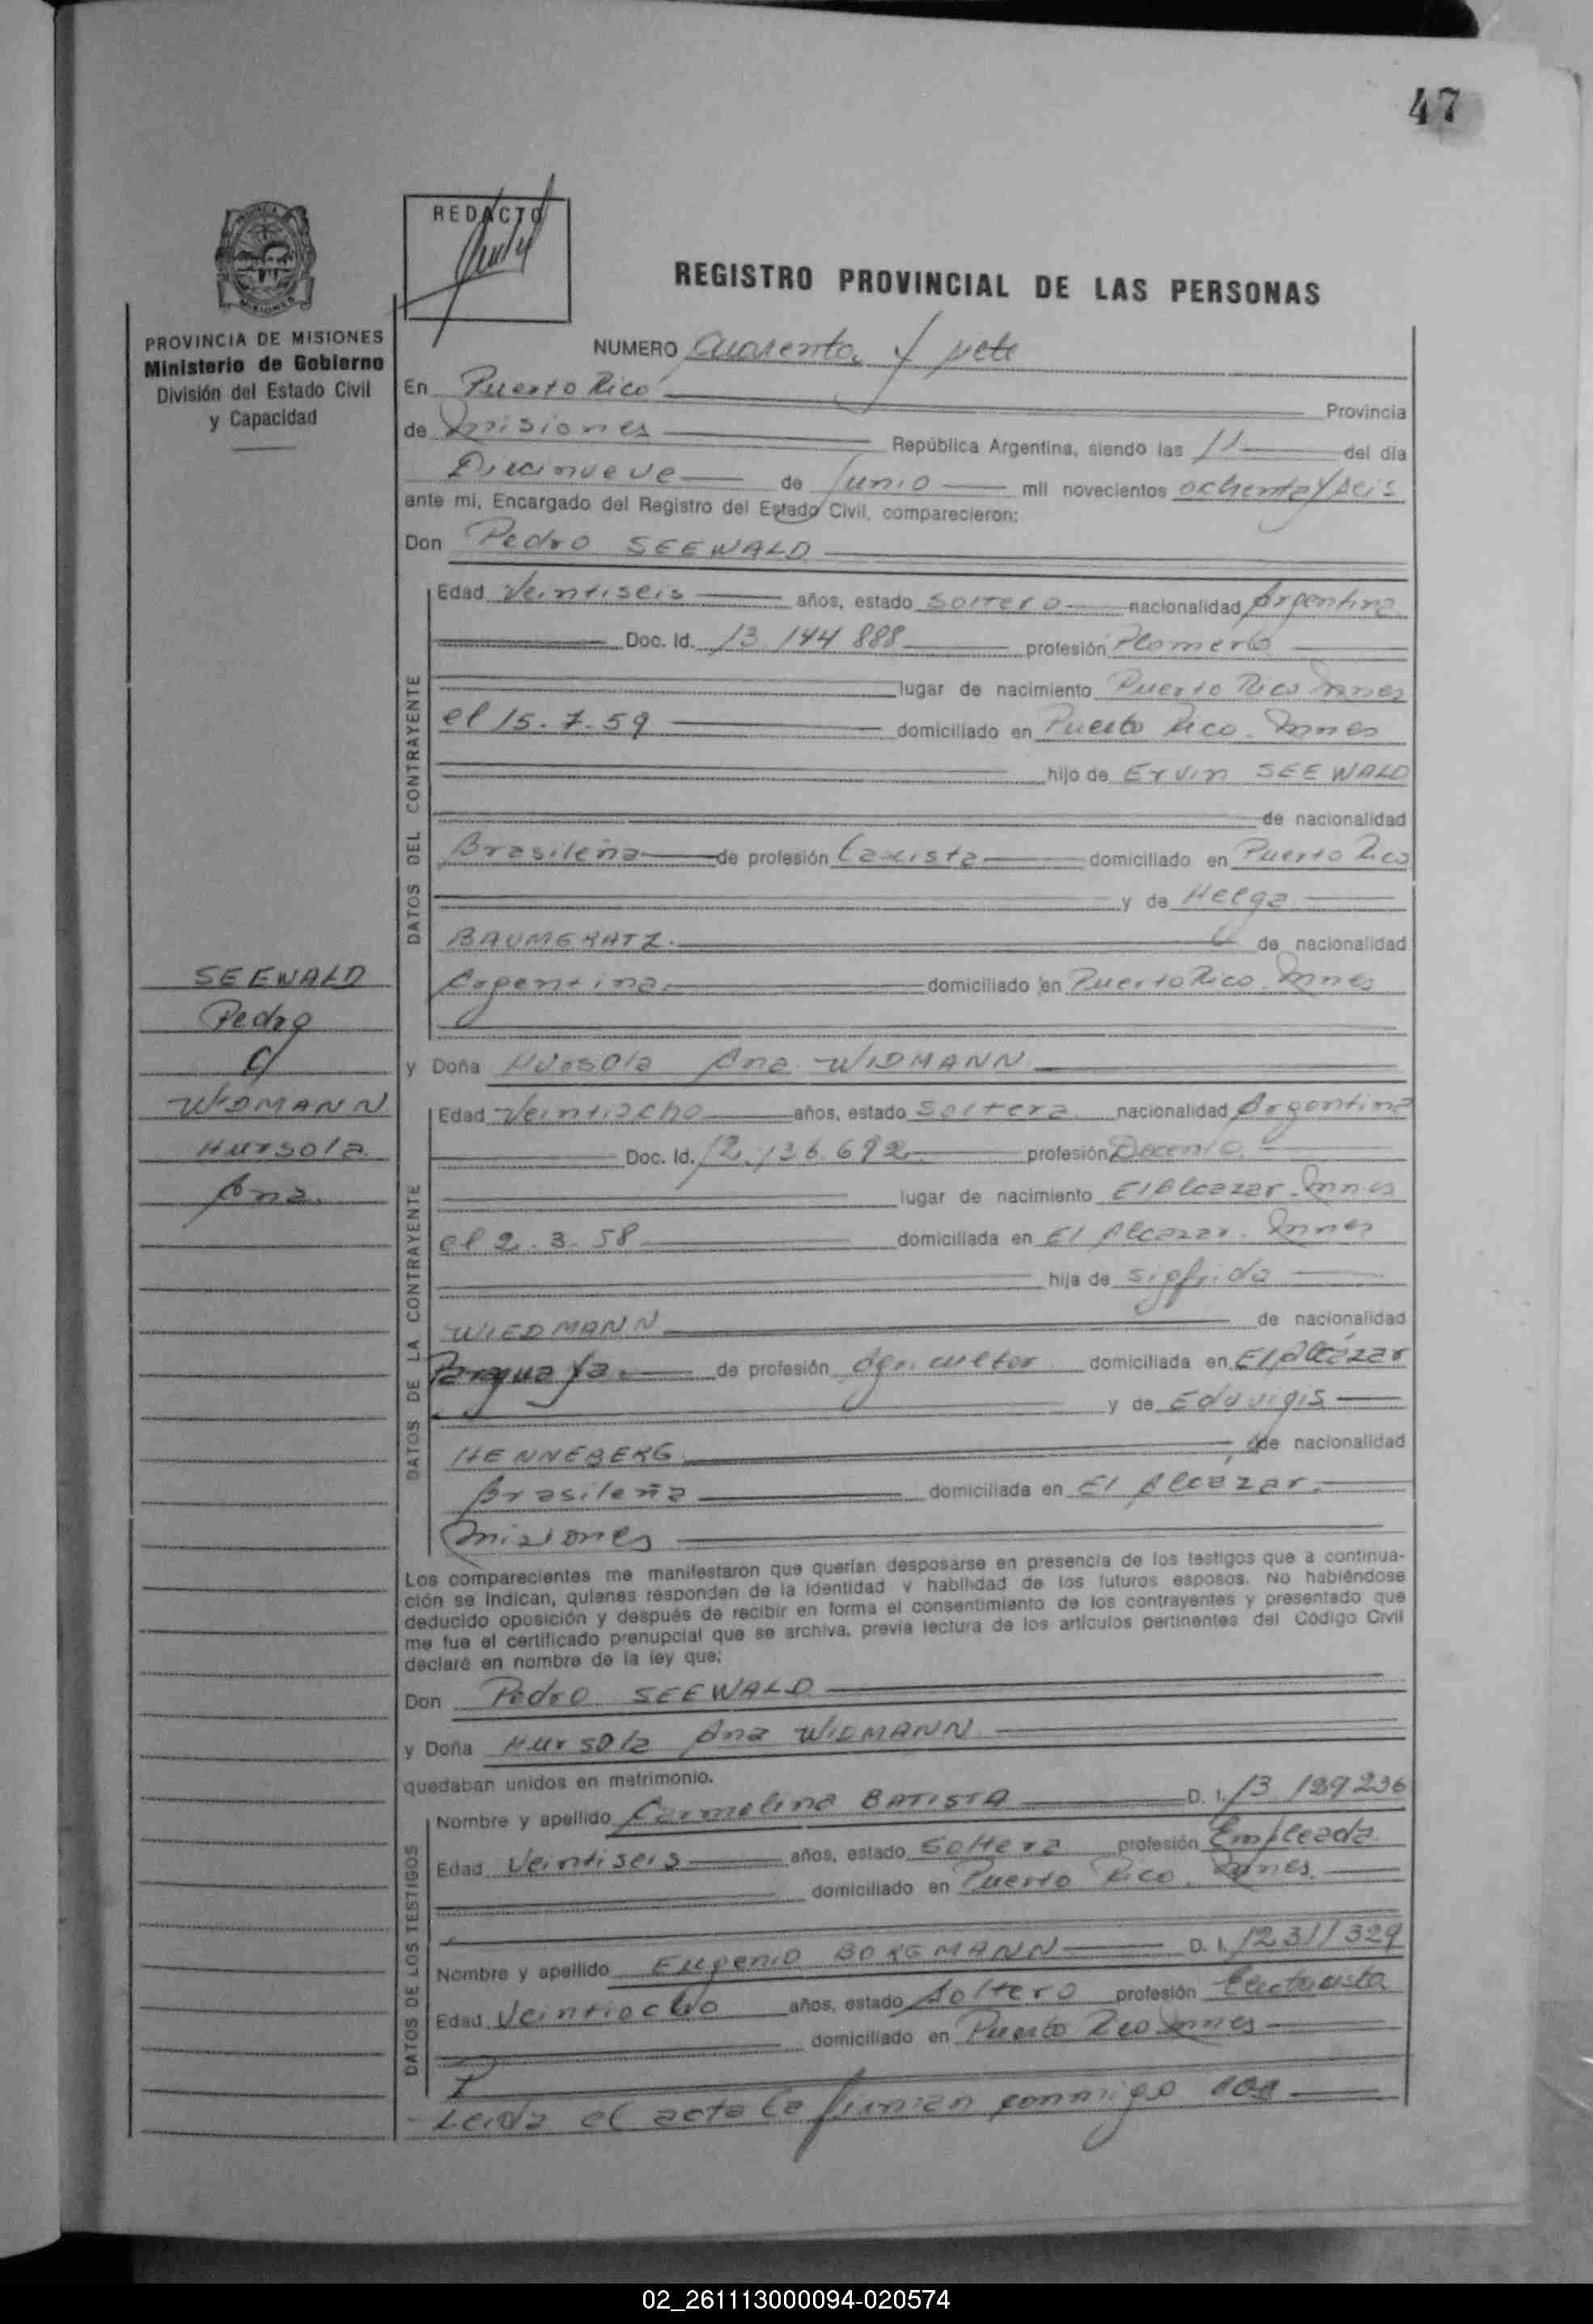 47
REDACTO
REGISTRO PROVINCIAL DE LAS PERSONAS
PROVINCIA DE MISIONES
Ministerio de Gobierno
División del Estado Civil
y Capacidad
NUMERO Cuarenta y siete
En Puerto Rico Provincia
de Misiones República Argentina, siendo las 11 del día
Diecinueve de Junio mil novecientos ochenta y seis
ante mi, Encargado del Registro del Estado Civil, comparecieron:
Don Pedro SEEWALD
DATOS DEL CONTRAYENTE
Edad Veintiseis años, estado Soltero nacionalidad Argentina
Doc. Id. 13 144 888 profesión Plomero
lugar de nacimiento Puerto Rico Mnes
el 15.7.59 domiciliado en Puerto Rico. Mnes
hijo de Ervin SEEWALD
de nacionalidad
Brasileña de profesión taxista domiciliado en Puerto Rico
y de Helga
BAUMGRATZ. de nacionalidad
Argentina. domiciliado en Puerto Rico. Mnes
SEEWALD
Pedro
c/
WIDMANN
Hursola
Ana.
y Doña Hursola Ana WIDMANN
DATOS DE LA CONTRAYENTE
Edad Veintiocho años, estado Soltera nacionalidad Argentina
Doc. Id. 12.136.692. profesión Docente.
lugar de nacimiento El Alcazar. Mnes
el 2.3.58 domiciliada en El Alcazar. Mnes
hija de Sigfrido
WIEDMANN de nacionalidad
Paraguaya. de profesión Agricultor domiciliada en El Alcázar
y de Eduvigis
HENNEBERG. de nacionalidad
Brasileña domiciliada en El Alcázar.
Misiones
Los comparecientes me manifestaron que querían desposarse en presencia de los testigos que a continua-
ción se indican, quienes responden de la identidad y habilidad de los futuros esposos. No habiéndose
deducido oposición y después de recibir en forma el consentimiento de los contrayentes y presentado que
me fue el certificado prenupcial que se archiva, previa lectura de los artículos pertinentes del Código Civil
declaré en nombre de la ley que:
Don Pedro SEEWALD
y Doña Hursola Ana WIDMANN
quedaban unidos en matrimonio.
DATOS DE LOS TESTIGOS
Nombre y apellido Carmelina BATISTA D. I. 13 189236
Edad Veintiseis años, estado Soltera profesión Empleada
domiciliado en Puerto Rico. Mnes.
Nombre y apellido Eugenio BORGMANN D. I. 12311329
Edad Veintiocho años, estado Soltero profesión
domiciliado en Puerto Rico Mnes
Leida el acta la firman conmigo los
02_261113000094-020574